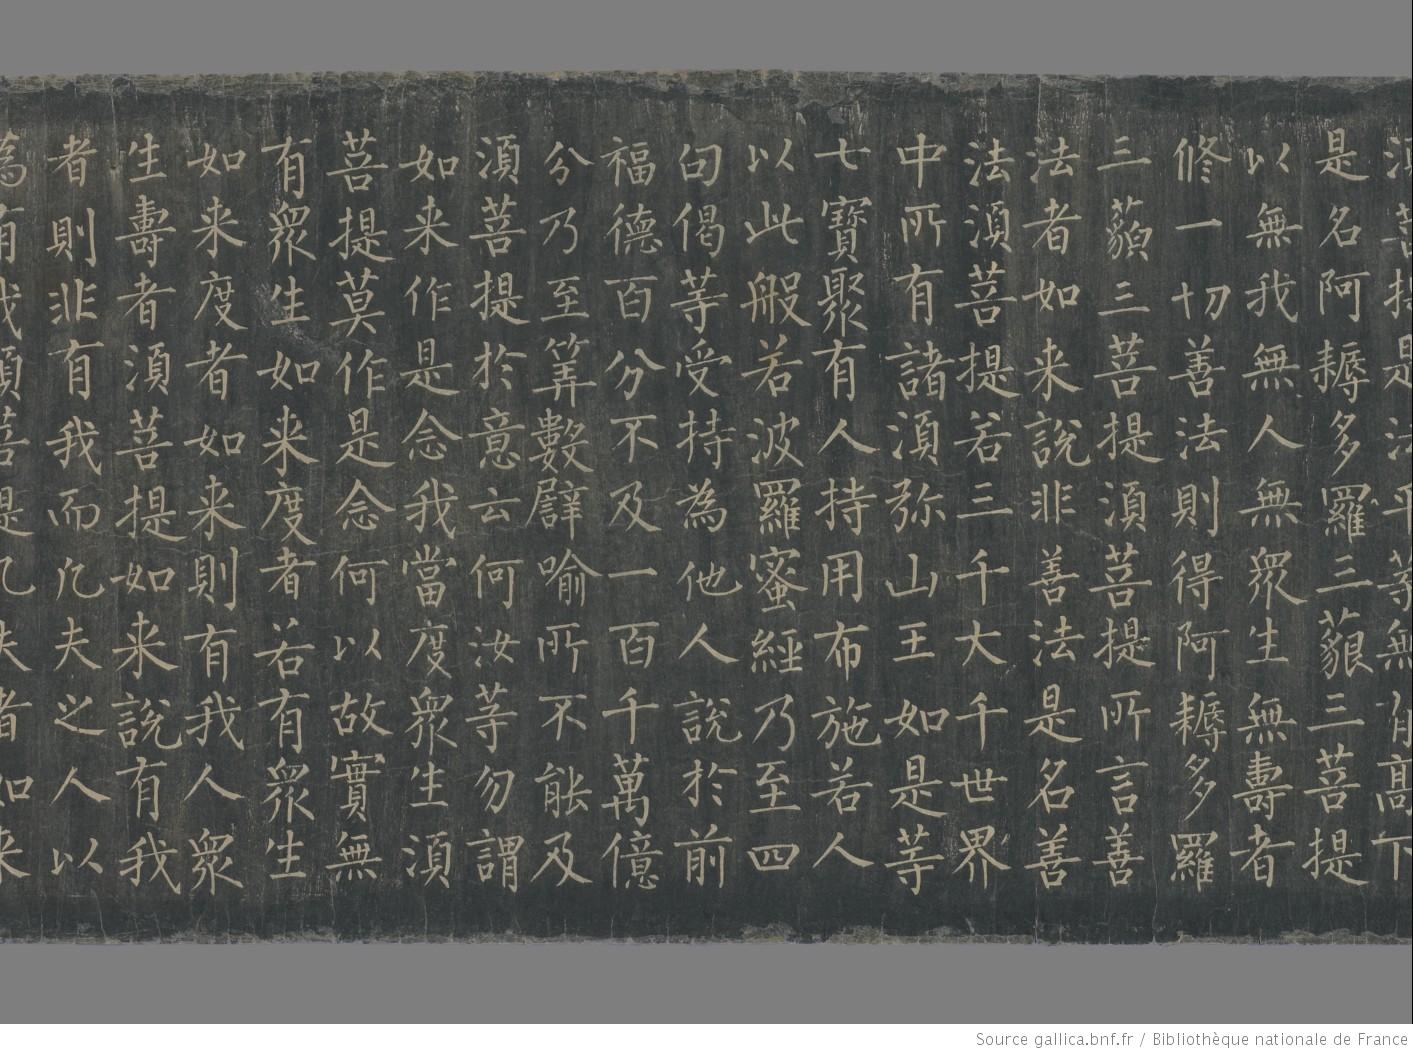 須菩提是法平等無有高下
是名阿耨多羅三藐三菩提
以無我無人無眾生無壽者
修一切善法則得阿耨多羅
三藐三菩提須菩提所言善
法者如来說非善法是名善
法須菩提若三千大千世界
中所有諸須弥山王如是等
七寶聚有人持用布施若人
以此般若波羅蜜經乃至四
句偈等受持為他人說於前
福德百分不及一百千萬億
分乃至筭數譬喻所不能及
須菩提於意云何汝等勿謂
如来作是念我當度眾生須
菩提莫作是念何以故實無
有眾生如来度者若有眾生
如来度者如来則有我人眾
生壽者須菩提如来說有我
者則非有我而凡夫之人以
為有我須菩提凡夫者如来
Source gallica.bnf.fr / Bibliothèque nationale de France